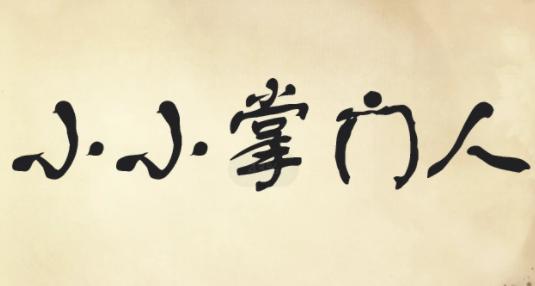 小小掌门人